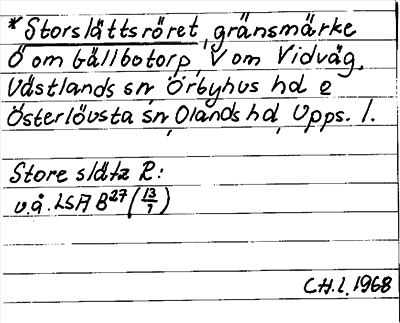 *Storslättsröret, gränsmärke
Ö om Gällbotorp, V om Vidvåg,
Västlands sn, Örbyhus hd o
Österlövsta sn, Olands hd, Upps. l.
Store slätz R:
u.å. LSA B27 (13/7)
C.H.l. 1968